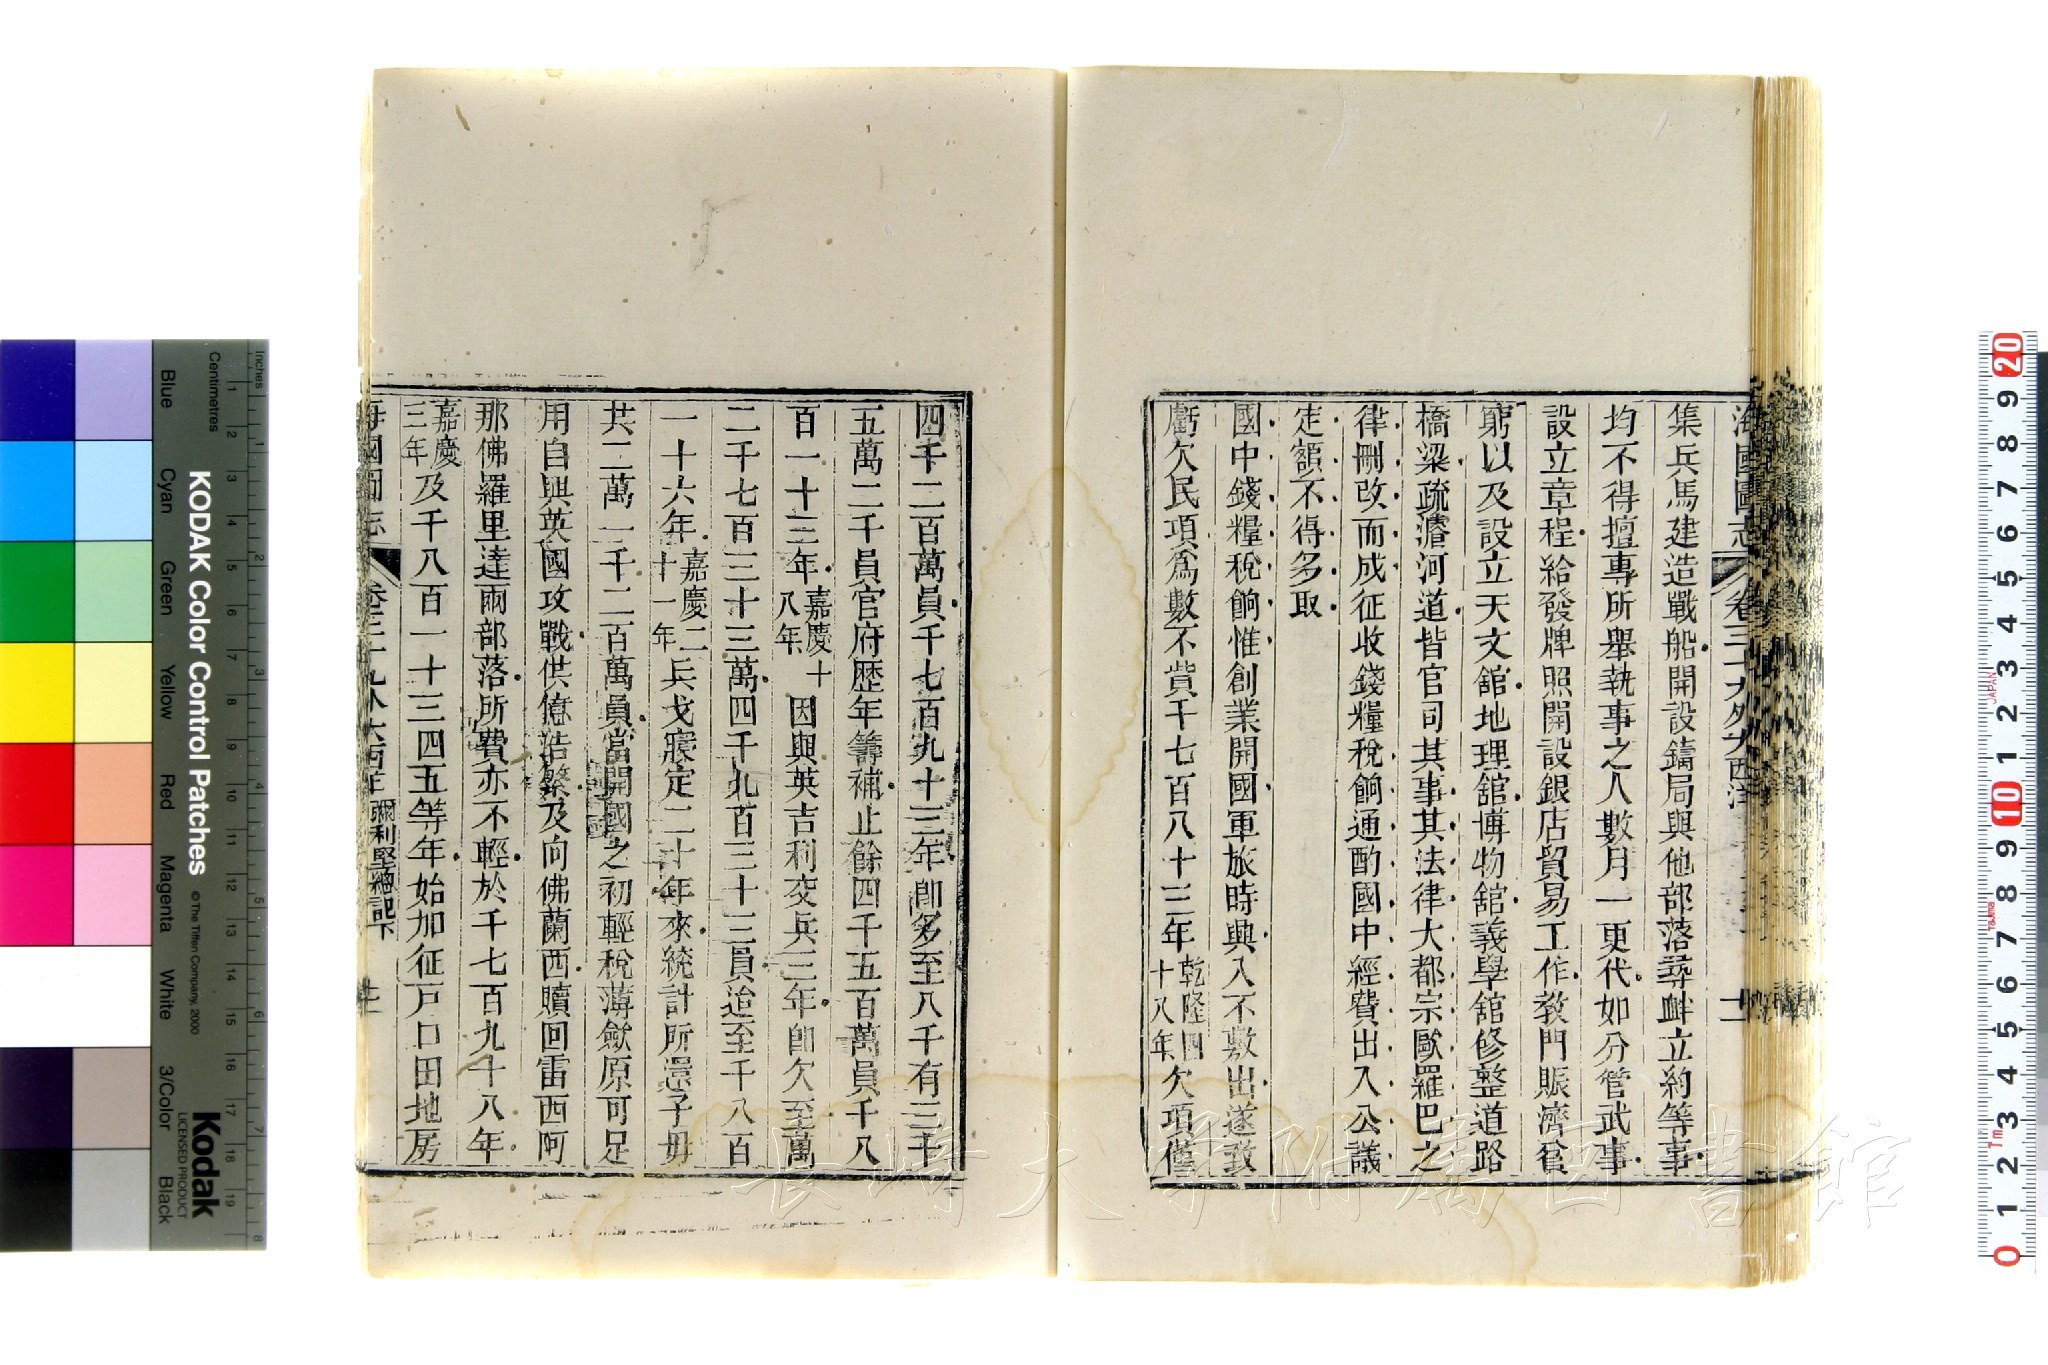 海國圖志 卷三十九外大西洋 十一
集兵馬建造戰船開設鑄局與他部落尋衅立約等事
均不得擅專所舉執事之人數月一更代如分管武事
設立章程給發牌照開設銀店貿易工作教門賑濟貧
窮以及設立天文舘地理舘博物舘義學舘修整道路
橋梁疏濬河道皆官司其事其法律大都宗歐羅巴之
律刪改而成征收錢糧稅餉通酌國中經費出入公議
定額不得多取
國中錢糧稅餉惟創業開國軍旅時興入不敷出遂致
虧欠民項爲數不貲千七百八十三年乾隆四十八年欠項僅
四千二百萬員千七百九十三年卽多至八千有三千
五萬二千員官府歷年籌補止餘四千五百萬員千八
百一十三年嘉慶十八年因與英吉利交兵三年卽欠至萬
二千七百三十三萬四千九百三十三員迨至千八百
一十六年嘉慶二十一年兵戈寢定二十年來統計所還子毋
共二萬一千二百萬員當開國之初輕稅薄歛原可足
用自與英國攻戰供億浩繁及向佛蘭西贖回雷西阿
那佛羅里達兩部落所費亦不輕於千七百九十八年
嘉慶三年及千八百一十三四五等年始加征戸口田地房
海國圖志 卷三十九外大西洋 彌利堅總記下 十二
KODAK Color Control Patches
© The Tiffen Company, 2000
Kodak
LICENSED PRODUCT
Blue Cyan Green Yellow Red Magenta White 3/Color Black
Centimetres
Inches
1 2 3 4 5 6 7 8 9 10 11 12 13 14 15 16 17 18 19
1 2 3 4 5 6 7 8
20 9 8 7 6 5 4 3 2 1 10 9 8 7 6 5 4 3 2 1 0
JAPAN
Tajima
長崎大学附属図書館